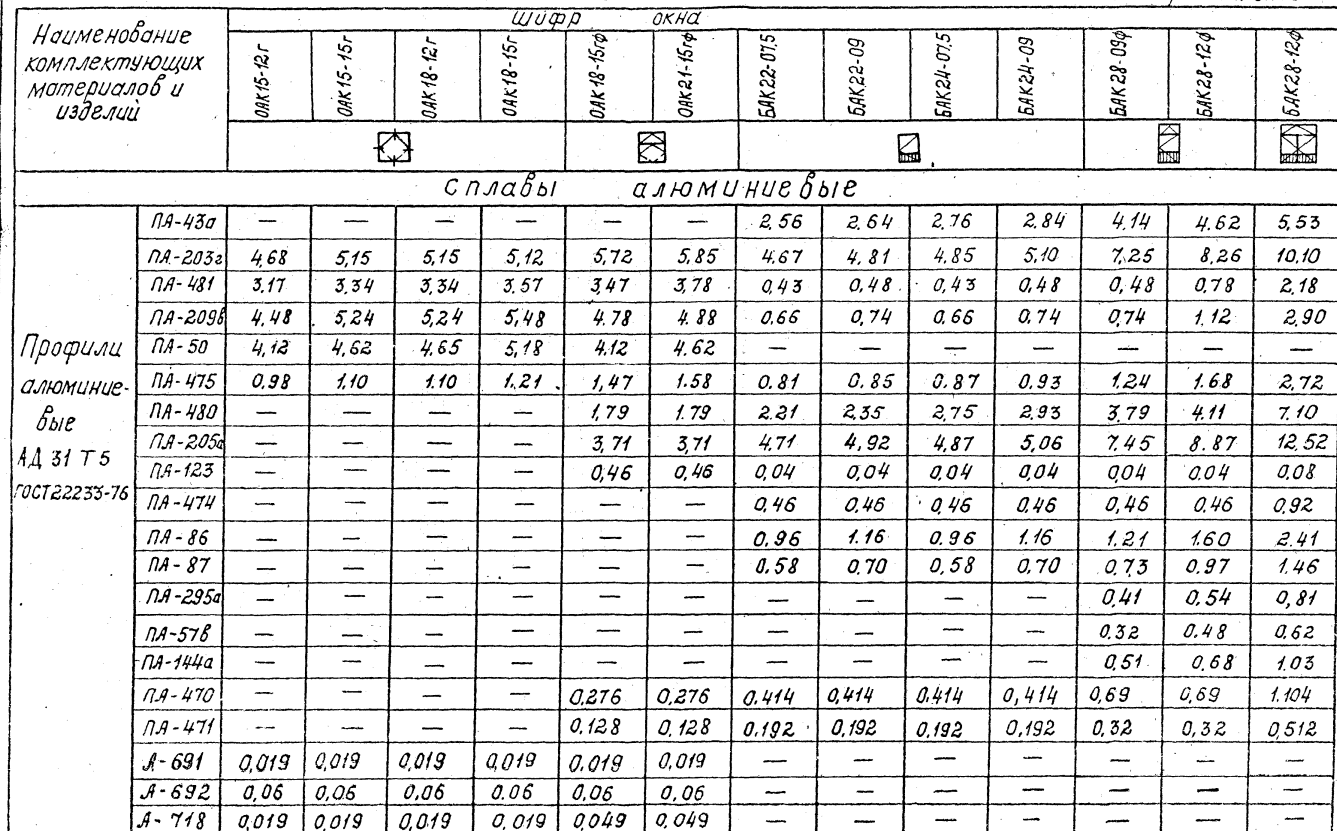 Наименование комплектующих материалов и изделий
Шифр окна
ОАК15-12г ОАК15-15г ОАК18-12г ОАК18-15г ОАК18-15гф ОАК21-15гф БАК22-07,5 БАК22-09 БАК24-07,5 БАК24-09 БАК28-09ф БАК28-12ф БАК28-12ф
Сплавы алюминиевые
Профили алюминиевые АД 31 Т5 ГОСТ22233-76
ПА-43а — — — — — — 2,56 2,64 2,76 2,84 4,14 4.62 5,53
ПА-203г 4,68 5,15 5,15 5,12 5,72 5,85 4,67 4,81 4,85 5,10 7,25 8,26 10,10
ПА-481 3,17 3,34 3,34 3,57 3,47 3,78 0,43 0,48 0,43 0,48 0,48 0,78 2,18
ПА-209в 4,48 5,24 5,24 5,48 4.78 4.88 0,66 0,74 0,66 0,74 0,74 1,12 2,90
ПА-50 4,12 4,62 4,65 5,18 4.12 4.62 — — — — — — —
ПА-475 0,98 1,10 1.10 1.21 1,47 1.58 0,81 0.85 0.87 0,93 1,24 1.68 2,72
ПА-480 — — — — 1,79 1.79 2,21 2,35 2,75 2,93 3,79 4,11 7.10
ПА-205а — — — — 3,71 3,71 4,71 4,92 4,87 5,06 7,45 8.87 12,52
ПА-123 — — — — 0,46 0,46 0,04 0,04 0,04 0,04 0,04 0.04 0,08
ПА-474 — — — — — — 0,46 0,46 0,46 0,46 0,46 0,46 0,92
ПА-86 — — — — — — 0,96 1.16 0,96 1.16 1,21 1.60 2.41
ПА-87 — — — — — — 0.58 0,70 0,58 0,70 0,73 0,97 1.46
ПА-295а — — — — — — — — — — 0,41 0,54 0,81
ПА-57в — — — — — — — — — — 0,32 0.48 0,62
ПА-144а — — — — — — — — — — 0,51 0,68 1.03
ПА-470 — — — — 0,276 0,276 0.414 0,414 0,414 0,414 0,69 0,69 1.104
ПА-471 — — — — 0.128 0,128 0,192 0,192 0,192 0,192 0,32 0,32 0,512
А-691 0,019 0,019 0,019 0,019 0.019 0,019 — — — — — — —
А-692 0,06 0,06 0,06 0.06 0,06 0,06 — — — — — — —
А-718 0,019 0,019 0,019 0,019 0,049 0,049 — — — — — — —